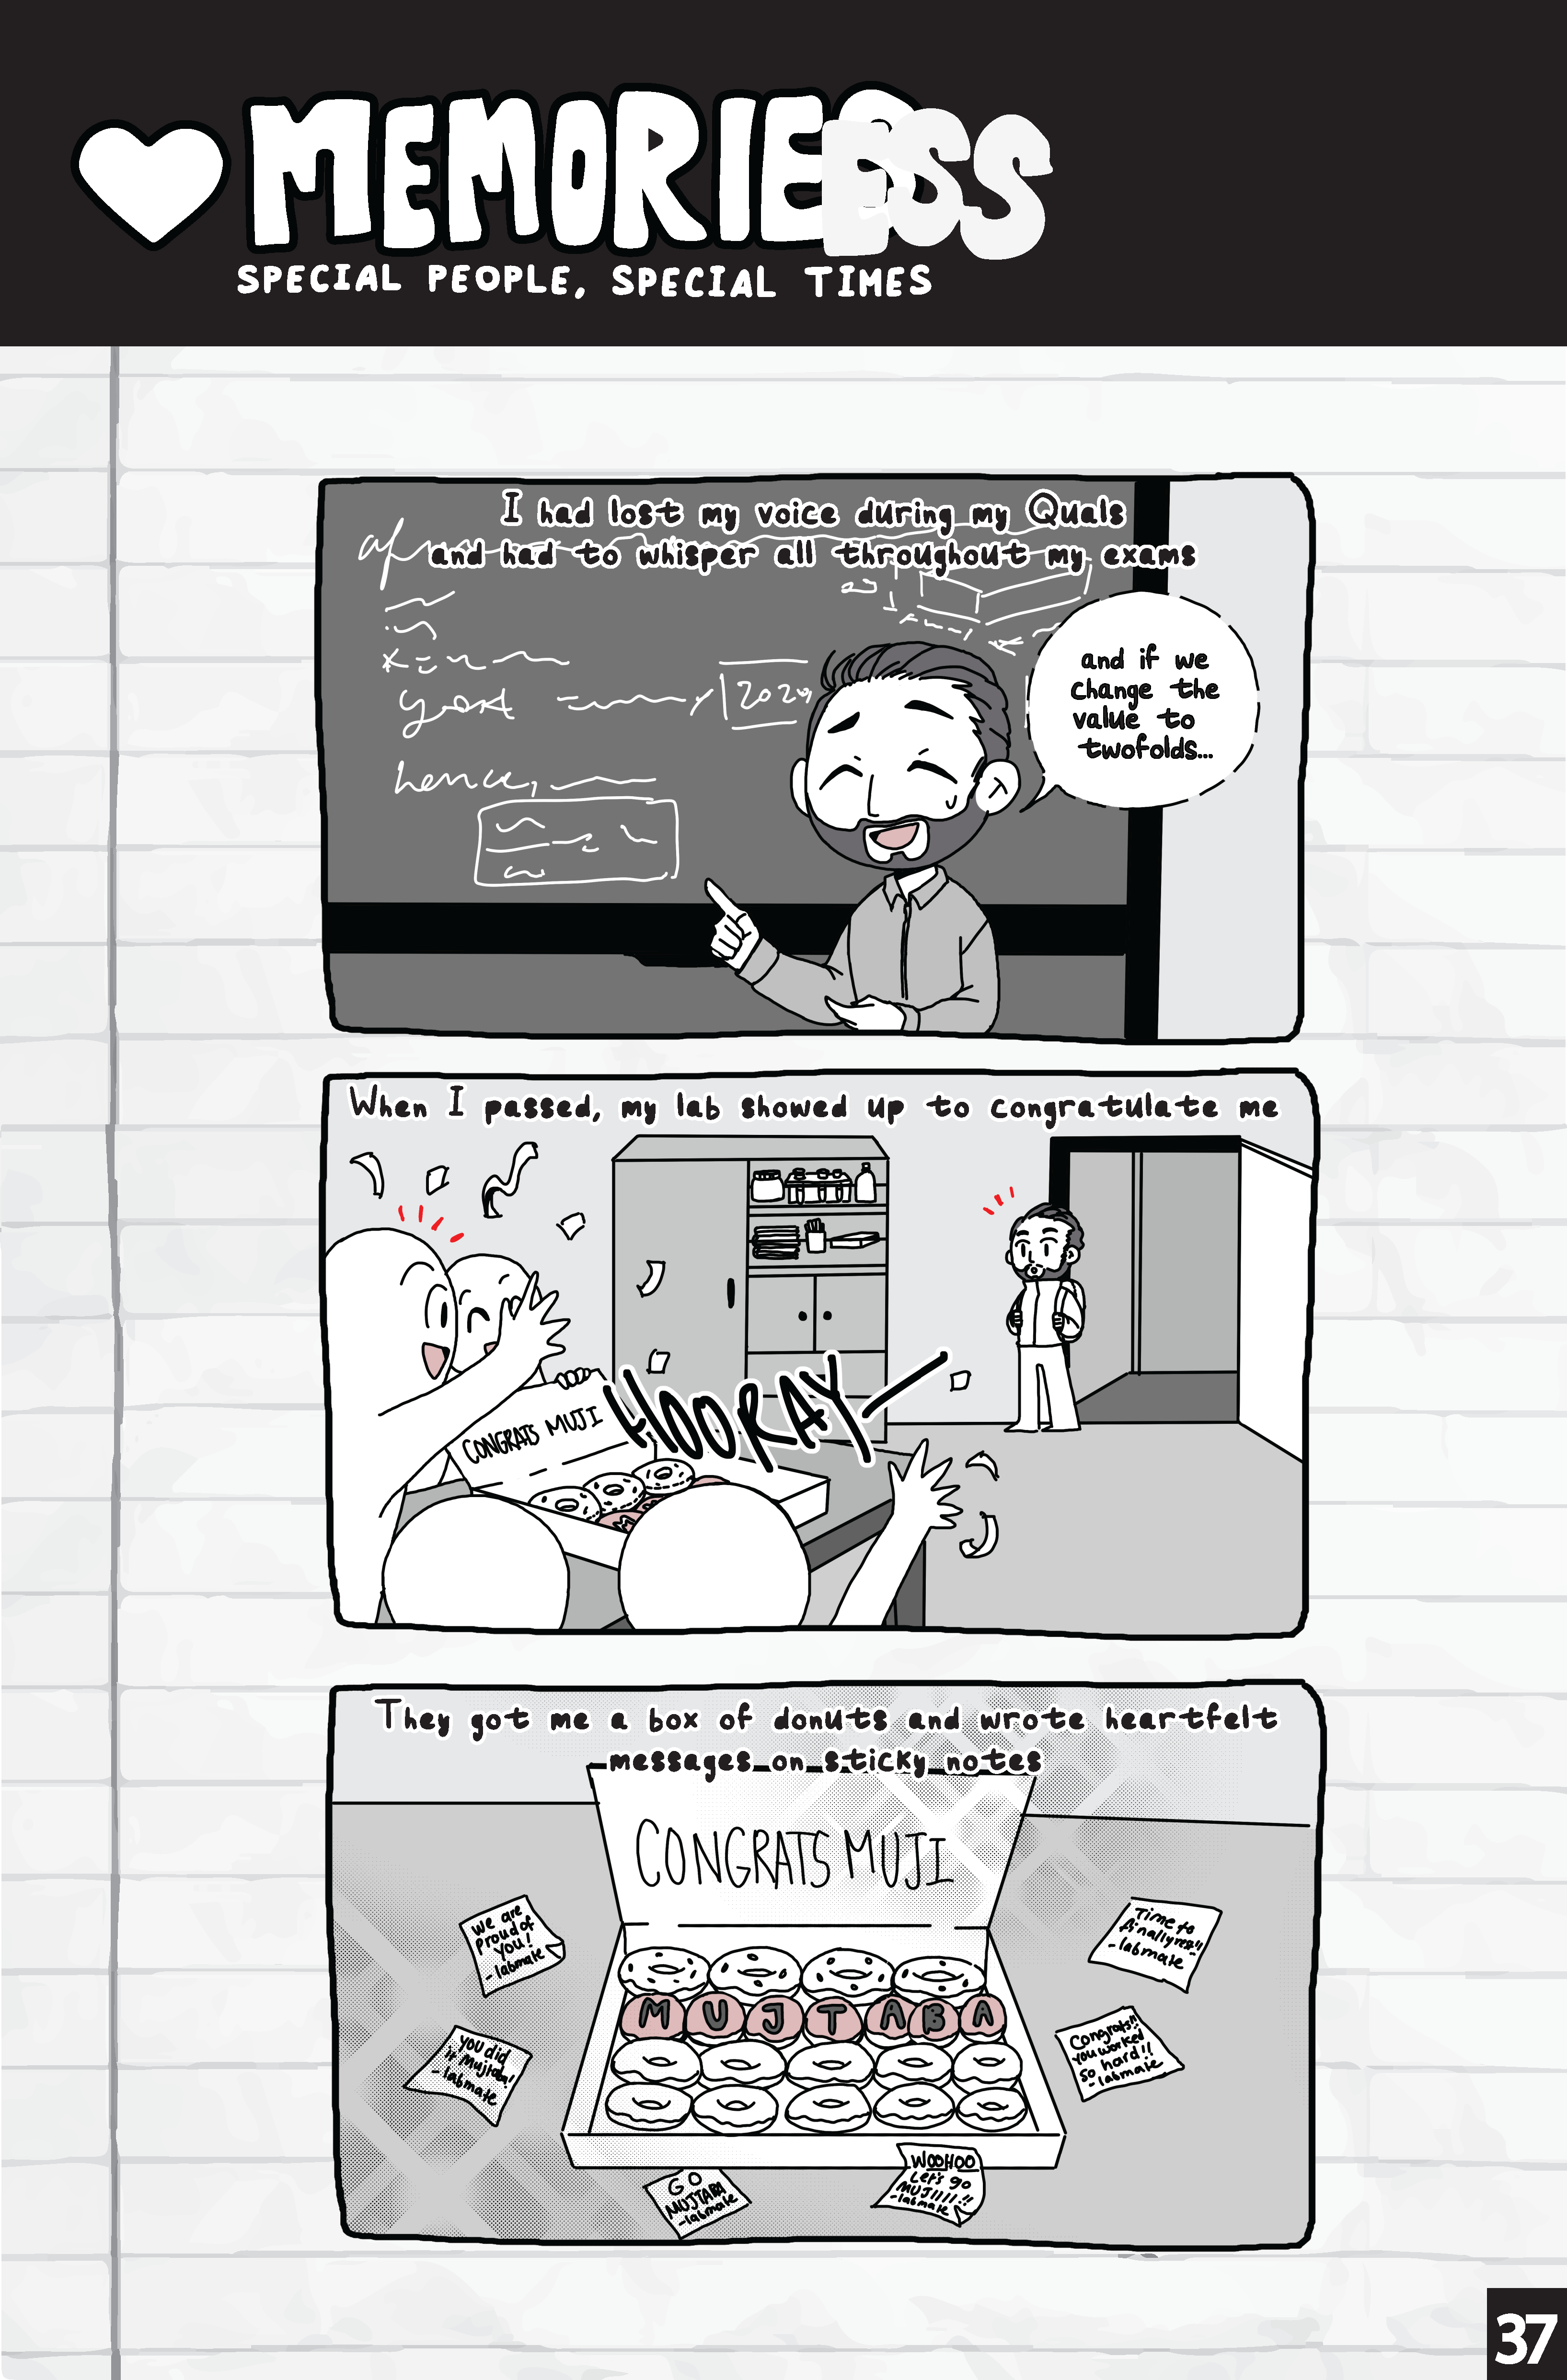 MEMORIESS
SPECIAL PEOPLE, SPECIAL TIMES
I had lost my voice during my Quals
and had to whisper all throughout my exams
and if we
change the
value to
twofolds...
hence,
When I passed, my lab showed up to congratulate me
CONGRATS MUJI
HOORAY
They got me a box of donuts and wrote heartfelt
messages on sticky notes
CONGRATS MUJI
We are
proud of
you!
- labmate
Time to
finally rest!!
- labmate
MUJTABA
you did
it Mujtaba!
- labmate
Congrats!!
you worked
so hard!!
- labmate
GO
MUJTABA
-labmate
WOOHOO
Let's go
MUJIIII!!
-labmate
37